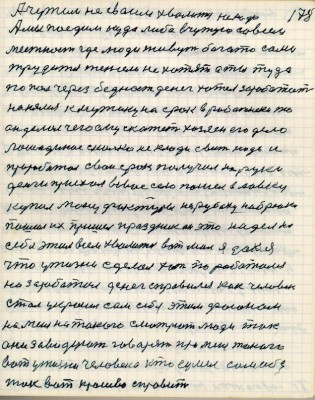 А чужим не своим хвалится некудо 178
А мы поедим куда либа в чужую совсем
местность где люди живут богато сами
трудится
попал через беднасть денег хотел заработать
нанялся к мужику на срок в работники то
он делал чего му скажет хозяен его дело
лошадиное сколько не клади свит ходи и
проработал свой срок получил на руки
деньги приехал в пошел в лавку
купил ману фактуры на рубаху на брюки
пошил их пришел праздник он это надел на
себя этим всем хвалится вот мол я какей
что у жизни сделал хоть по работал
но заработал денег справился как человек
стал украшен сам себя этим
на меня на такого смотрит люди так
они завидуют говарят про меня такого
вот у жизни человека кто сумел сам себя
так вот красиво справить